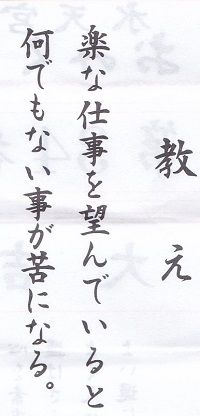 教え
楽な仕事を望んでいると
何でもない事が苦になる。